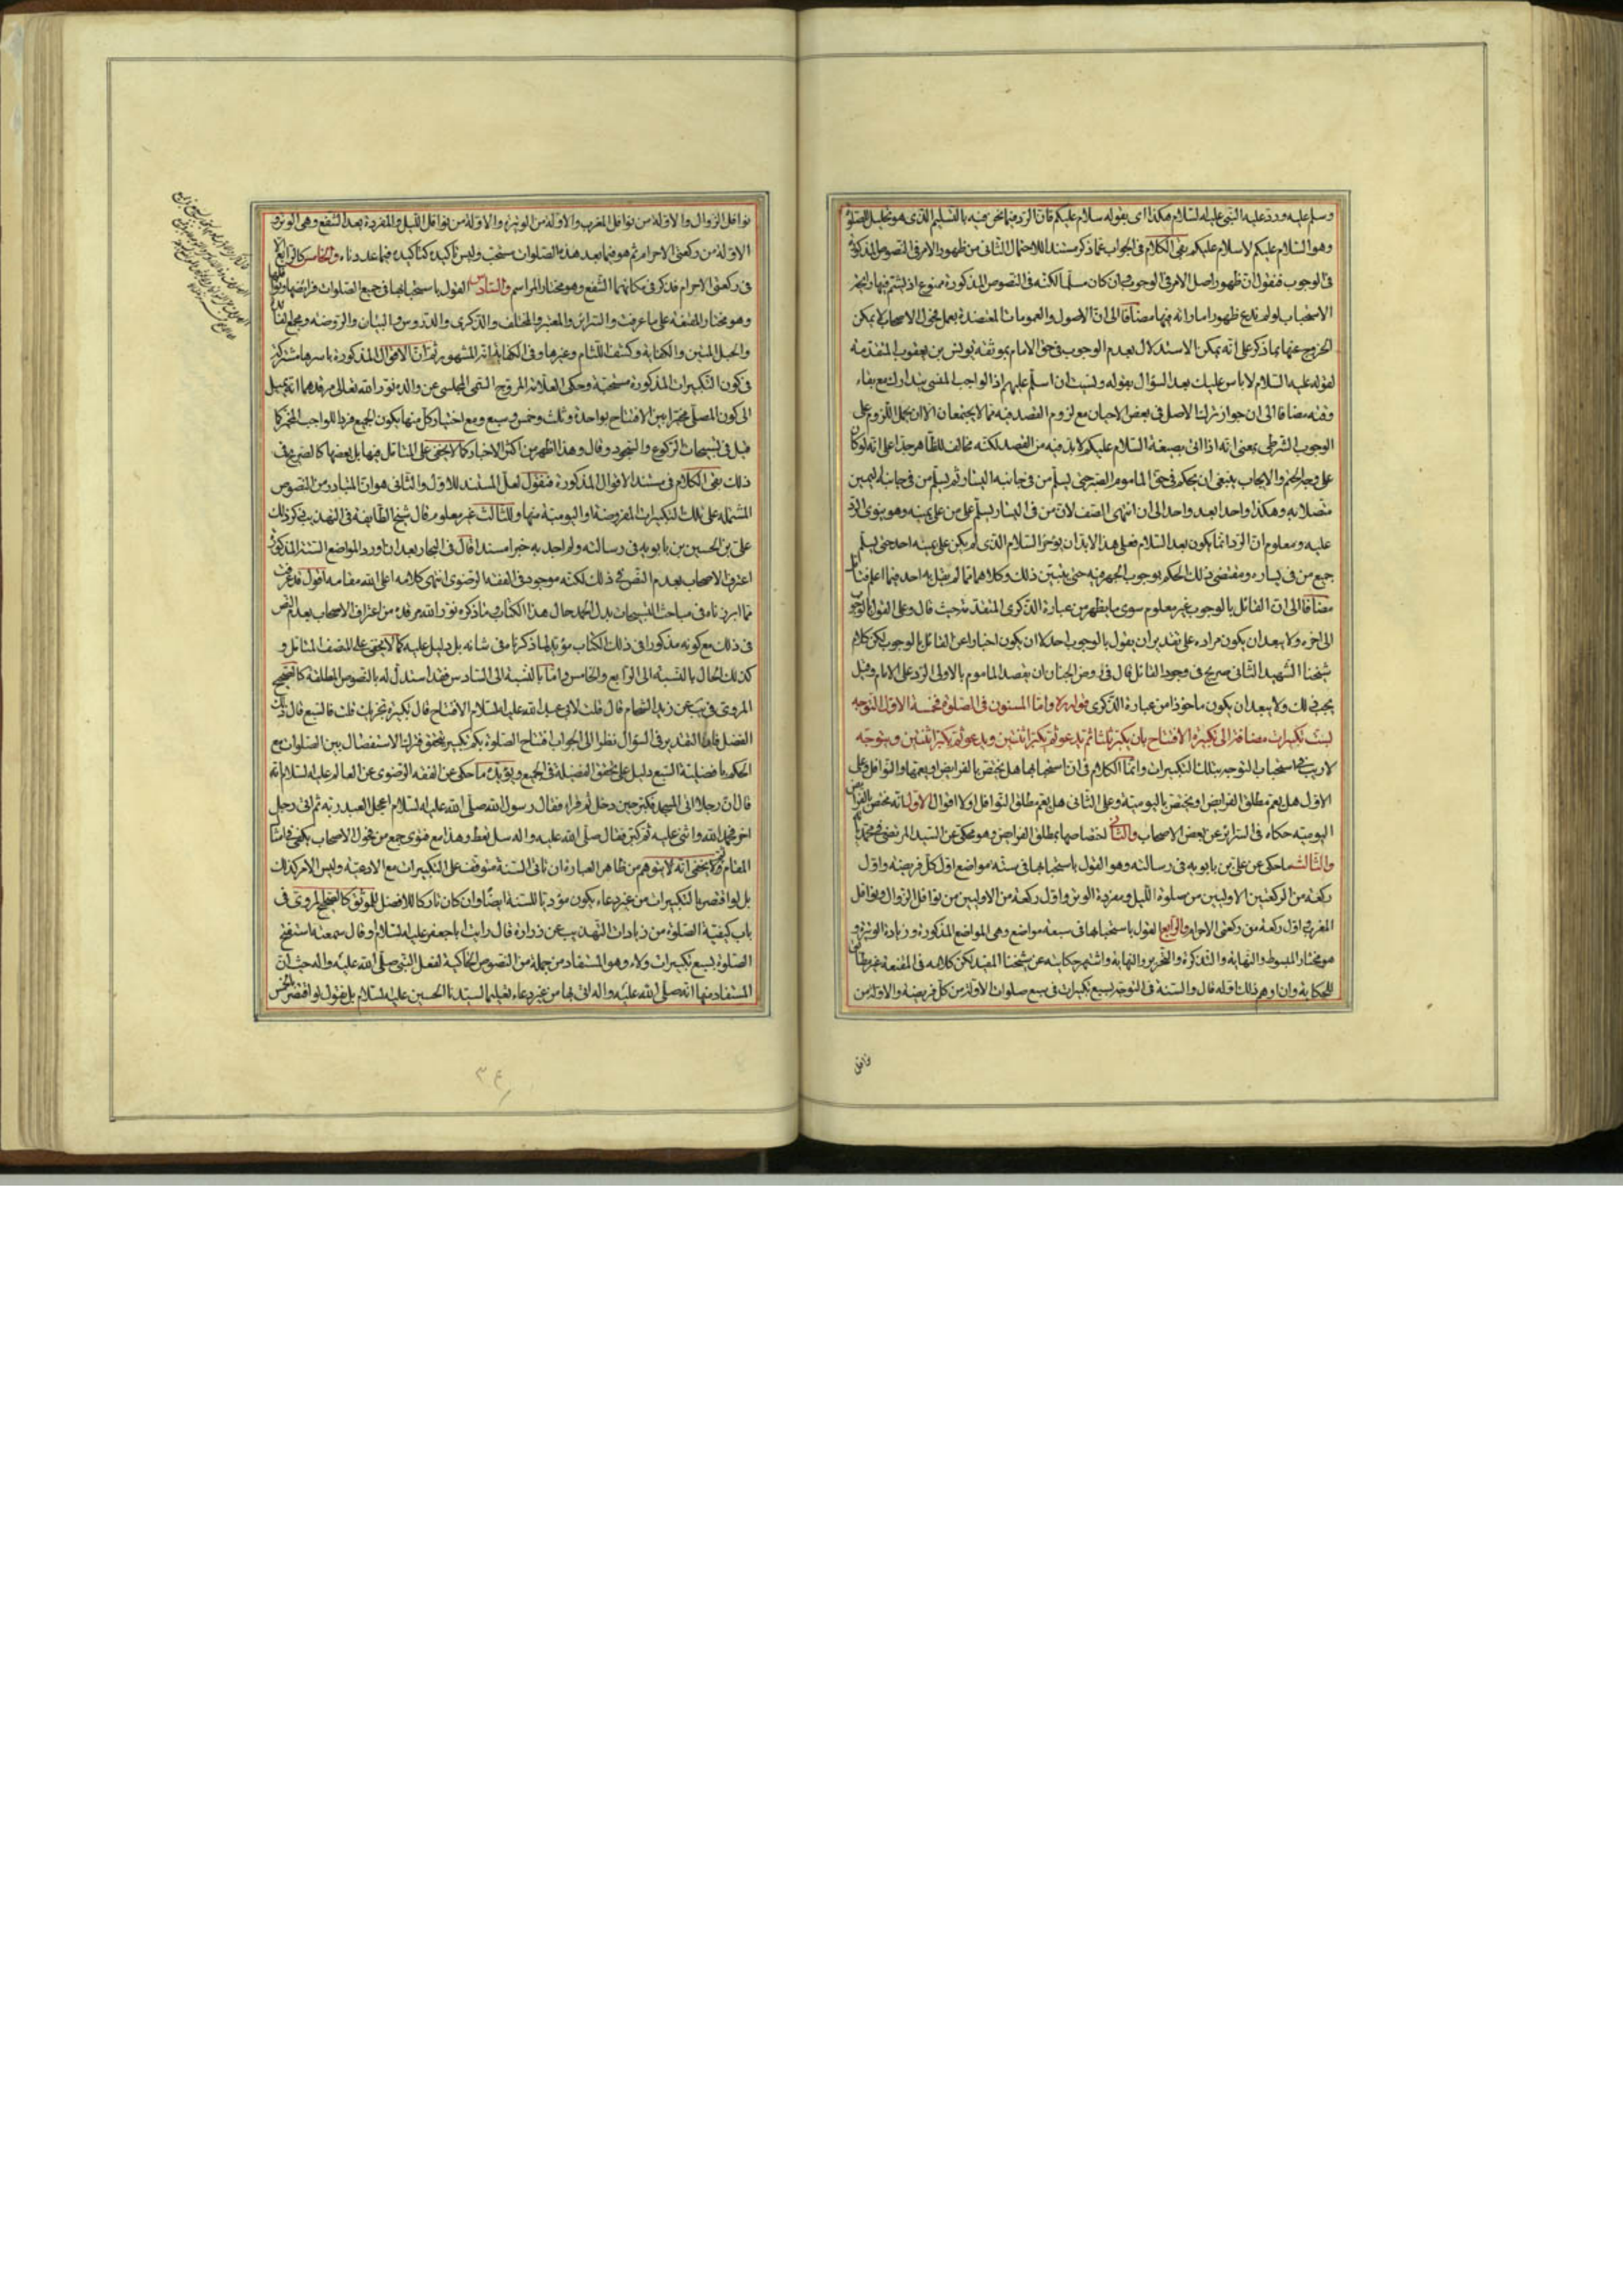 وسلم عليه ورد عليه النبي عليه السلام هكذا اى بقوله سلام عليكم فان الرد فيما نحن فيه بالتسليم الذى هو تحليل الصلوة
وهو السلام عليكم لا سلام عليكم بقى الكلام فى الجواب عما ذكر مستندا للاحتمال الثانى من ظهور الامر فى النصوص المذكورة
فى الوجوب فنقول ان ظهور اصل الامر فى الوجوب وان كان مسلما لكنه فى النصوص المذكورة ممنوع اذ ليتم فيها
الاستحباب لو لم ندع ظهور اماراته فيها مضافا الى ان الاصول والعمومات المعتضدة بعمل فحول الاصحاب لا يمكن
الخروج عنها بما ذكر على انه يمكن الاستدلال بعدم الوجوب فى حق الامام بموثقة يونس بن يعقوب المتقدمة
لقوله عليه السلام لا باس عليك بعد السؤال بقوله ونسيت ان اسلم عليهم اذ الواجب المنسى يتدارك مع بقاء
وقته مضافا الى ان جواز ترك الاصل فى بعض الاحيان مع لزوم القصد فيه مما لا يجتمعان الا ان يحمل اللزوم على
الوجوب الشرطى بمعنى انه اذا اتى بصيغة السلام عليكم لا بد فيه من القصد لكنه مخالف للظاهر جدا على انه لو كان
على وجه الحتم والايجاب ينبغى ان يحكم فى حق الماموم الصبر حتى يسلم من فى جانبه اليسار ثم يسلم من فى جانبه اليمين
متصلا به وهكذا واحدا بعد واحد الى ان انتهى الصف لان من فى اليسار يسلم على من على يمينه وهو ينوى الرد
عليه ومعلوم ان الرد انما يكون بعد السلام فعلى هذا لا بد ان يؤخر السلام الذى لم يكن على يمينه احد حتى يسلم
جميع من فى يساره ومقتضى ذلك الحكم بوجوب الجهر فيه حتى يتبين ذلك وكلاهما مما لم يقل به احد فيما اعلم
مضافا الى ان القائل بالوجوب غير معلوم سوى ما يظهر من عبارة الذكرى المتقدمة حيث قال وعلى القول بالوجوب
الى اخره ولا يبعد ان يكون مراده على تقدير ان يقول بالوجوب احد لا ان يكون اخبارا عن القائل بالوجوب لكن كلام
شيخنا الشهيد الثانى صريح فى وجود القائل قال فى روض الجنان ان يقصد الماموم بالاولى الرد على الامام وقيل
يجب ذلك ولا يبعد ان يكون ماخوذا من عبارة الذكرى قوله ره واما المسنون فى الصلوة فخمسة الاول التوجه
بست تكبيرات مضافة الى تكبيرة الافتتاح بان يكبر ثلثا ثم يدعو ثم يكبر اثنتين ويدعو ثم يكبر اثنتين ويتوجه
لا ريب فى استحباب التوجه بتلك التكبيرات وانما الكلام فى ان استحبابها هل يختص بالفرايض او يعمها والنوافل وعلى
الاول هل يعم مطلق الفرايض او يختص باليومية وعلى الثانى هل يعم مطلق النوافل او لا اقوال الاول انه يختص بالفرائض
اليومية حكاه فى السرائر عن بعض الاصحاب والثانى اختصاصها بمطلق الفرايض وهو محكى عن السيد المرتضى
والثالث ما حكى عن على بن بابويه فى رسالته وهو القول باستحبابها فى ستة مواضع اول كل فريضة واول
ركعة من الركعتين الاوليين من صلوة الليل ومفردة الوتر واول ركعة من الاوليين من نوافل الزوال ونوافل
المغرب اول ركعة من ركعتى الاحرام والرابع القول باستحبابها فى سبعة مواضع وهى المواضع المذكورة وزيادة الوتيرة
هو مختار المبسوط والنهاية والتذكرة والتحرير والنهاية واشتهر حكايته عن شيخنا المفيد لكن كلامه فى المقنعة غير مطابق
للحكاية وان اوهم ذلك اوله قال والسنة فى التوجه بسبع تكبيرات فى سبع صلوات الاولة من كل فريضة والاولة من
نوافل
نوافل الزوال والاولة من نوافل المغرب والاولة من الوتيرة والاولة من نوافل الليل والمفردة بعد الشفع وهى الوتر و
الاولة من ركعتى الاحرام ثم هو فيما بعد هذه الصلوات مستحب وليس تاكيده كتاكيده فيما عددناه والخامس كالرابع
فى ركعتى الاحرام فذكر فى مكانهما الشفع وهو مختار المراسم والسادس القول باستحبابها فى جميع الصلوات فرائضها ونوافلها
وهو مختار المصنف على ما عرفت والسرائر والمعتبر والمختلف والذكرى والدروس والبيان والروضة ومجمع الفائدة
والحبل المتين والكفاية وكشف اللثام وغيرها وفى الكفاية انه المشهور ثم ان الاقوال المذكورة باسرها مشتركة
فى كون التكبيرات المذكورة مستحبة وحكى العلامة المروج التقى المجلسى عن والده نور الله تعالى مرقدهما انه يميل
الى كون المصلى مخيرا بين الافتتاح بواحدة وثلث وخمس وسبع ومع اختيار كل منها يكون الجميع فردا للواجب المخير كما
قيل فى تسبيحات الركوع والسجود وقال وهذا اظهر من اكثر الاخبار كما لا يخفى على المتامل فيها بل بعضها كالصريح فى
ذلك بقى الكلام فى مستند الاقوال المذكورة فنقول لعل المستند للاول والثانى هو ان المتبادر من النصوص
المشتملة على تلك التكبيرات المفروضة او اليومية منها وللثالث غير معلوم قال شيخ الطايفة فى التهذيب ذكر ذلك
على بن الحسين بن بابويه فى رسالته ولم اجد به خبرا مسندا قال فى البحار بعد ان اورد المواضع الستة المذكورة
اعترف الاصحاب بعدم النص فى ذلك لكنه موجود فى الفقه الرضوى انتهى كلامه اعلى الله مقامه اقول قد عرفت
مما ابرزناه فى مباحث التسبيحات بدل الحمد حال هذا الكتاب وما ذكره نور الله مرقده من اعتراف الاصحاب بعدم النص
فى ذلك مع كونه مذكورا فى ذلك الكتاب مؤيد لما ذكرناه فى شانه بل دليل عليه كما لا يخفى على المنصف المتامل و
كذلك الحال بالنسبة الى الرابع والخامس واما بالنسبة الى السادس فقد استدل له بالنصوص المطلقة كالصحيح
المروى فى يب عن زيد الشحام قال قلت لابى عبد الله عليه السلام الافتتاح قال تكبيرة تجزيك قلت فالسبع قال ذلك
الفضل فان التقدير فى السؤال نظرا الى الجواب افتتاح الصلوة بكم تكبير يتحقق فترك الاستفصال بين الصلوات مع
الحكم بافضلية السبع دليل على تحقق الفضيلة فى الجميع ويؤيده ما حكى عن الفقه الرضوى عن العالم عليه السلام انه
قال ان رجلا اتى المسجد فكبر حين دخل ثم قرا فقال رسول الله صلى الله عليه السلام اعجل العبد ربه ثم اتى رجل
اخر فحمد الله واثنى عليه ثم كبر فقال صلى الله عليه واله سل تعط وهذا مع فتوى جمع من فحول الاصحاب يكفى فى امثال
المقام ولا يخفى انه لا يتوهم من ظاهر العبارة ان تاتى السنة متوقف على التكبيرات مع الادعية وليس الامر كذلك
بل لو اقتصر بالتكبيرات من غير دعاء يكون مؤديا للسنة ايضا وان كان تاركا للافضل للموثق كالصحيح المروى فى
باب كيفية الصلوة من زيادات التهذيب عن زرارة قال رايت ابا جعفر عليه السلام او قال سمعته استفتح
الصلوة بسبع تكبيرات ولاء وهو المستفاد من جملة من النصوص الحاكية لفعل النبى صلى الله عليه واله حيث ان
المستفاد منها انه صلى الله عليه واله اتى بها من غير دعاء لتعليم السيدنا الحسين عليه السلام بل نقول لو اقتصر بالخمس